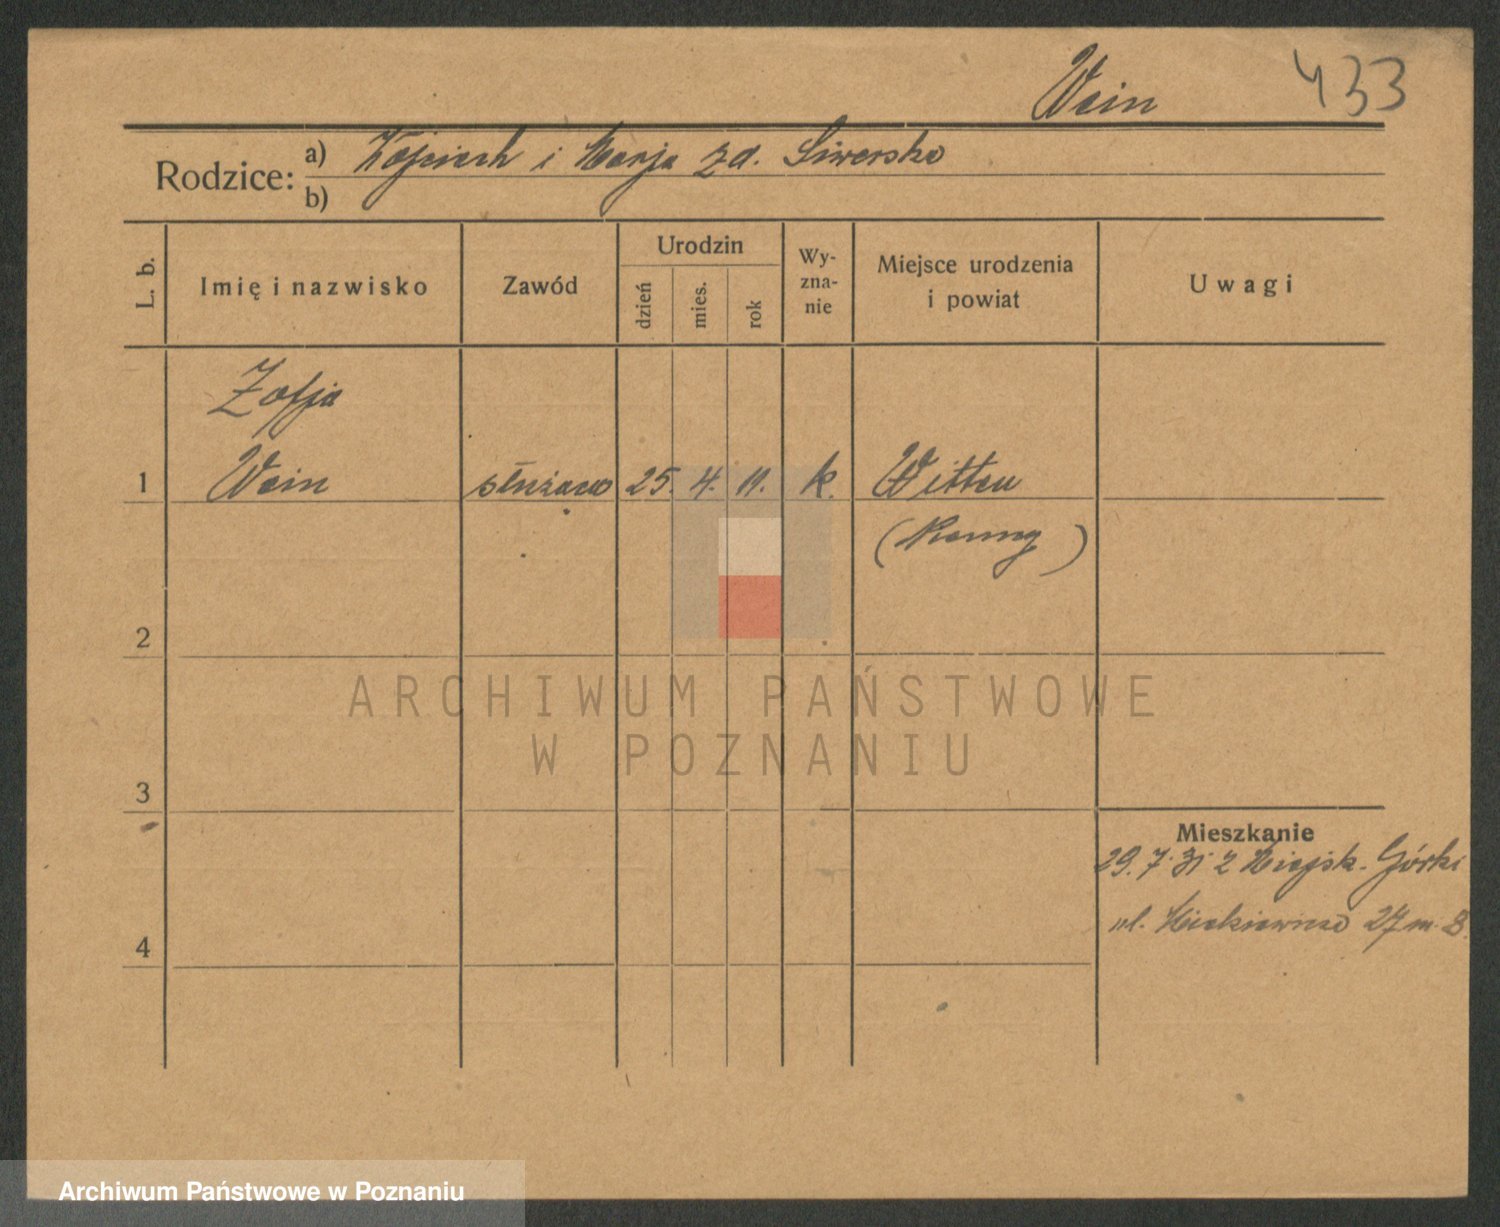 Wein 433
Rodzice: a) Wojciech i Marja zd. Siwerska
b)
L. b. Imię i nazwisko Zawód Urodzin dzień mies. rok Wy-zna-nie Miejsce urodzenia i powiat Uwagi
Zofja
1 Wein służąca 25. 4. 11. k. Witten
(Niemcy)
2
3
Mieszkanie
29. 7. 31 z Miejsk. Górki
ul. Mickiewicza 27 m. 8.
4
ARCHIWUM PAŃSTWOWE
W POZNANIU
Archiwum Państwowe w Poznaniu